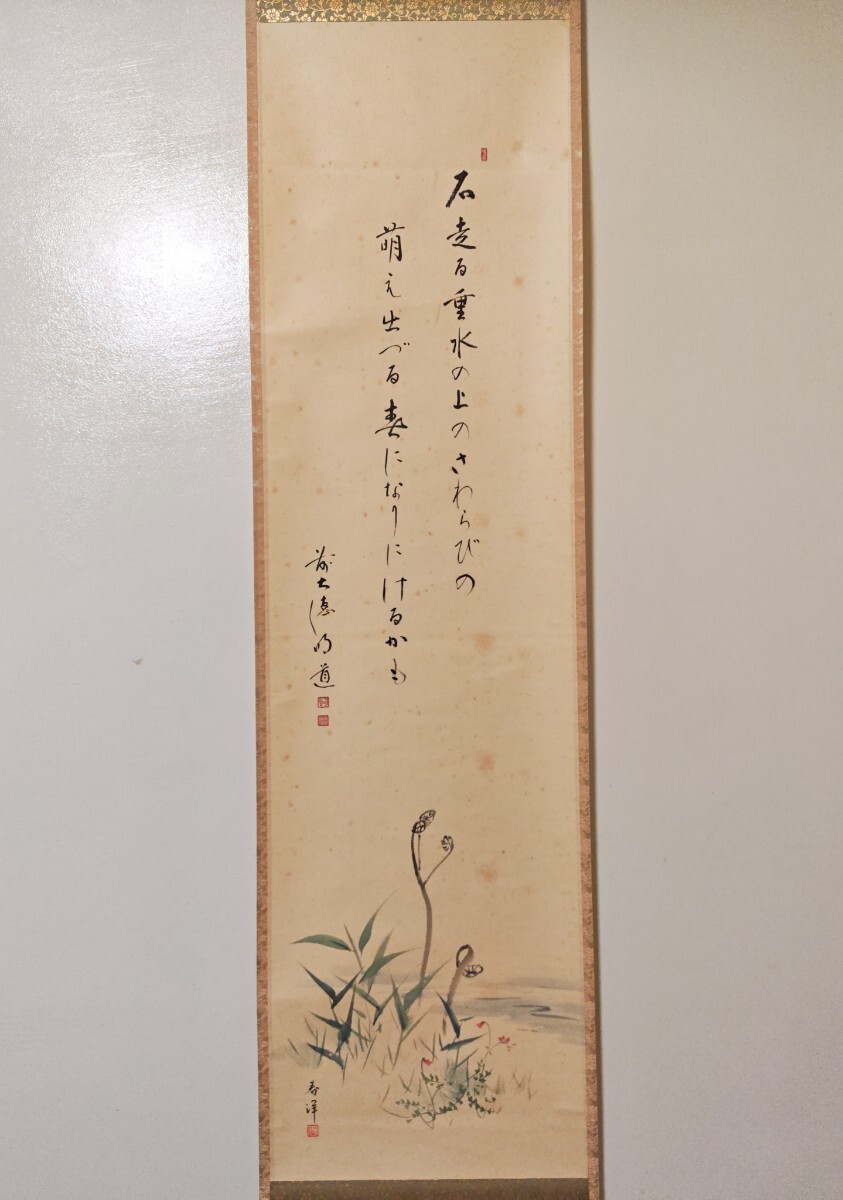 石走る垂水の上のさわらびの
萌え出づる春になりにけるかも
前大徳明道
春洋